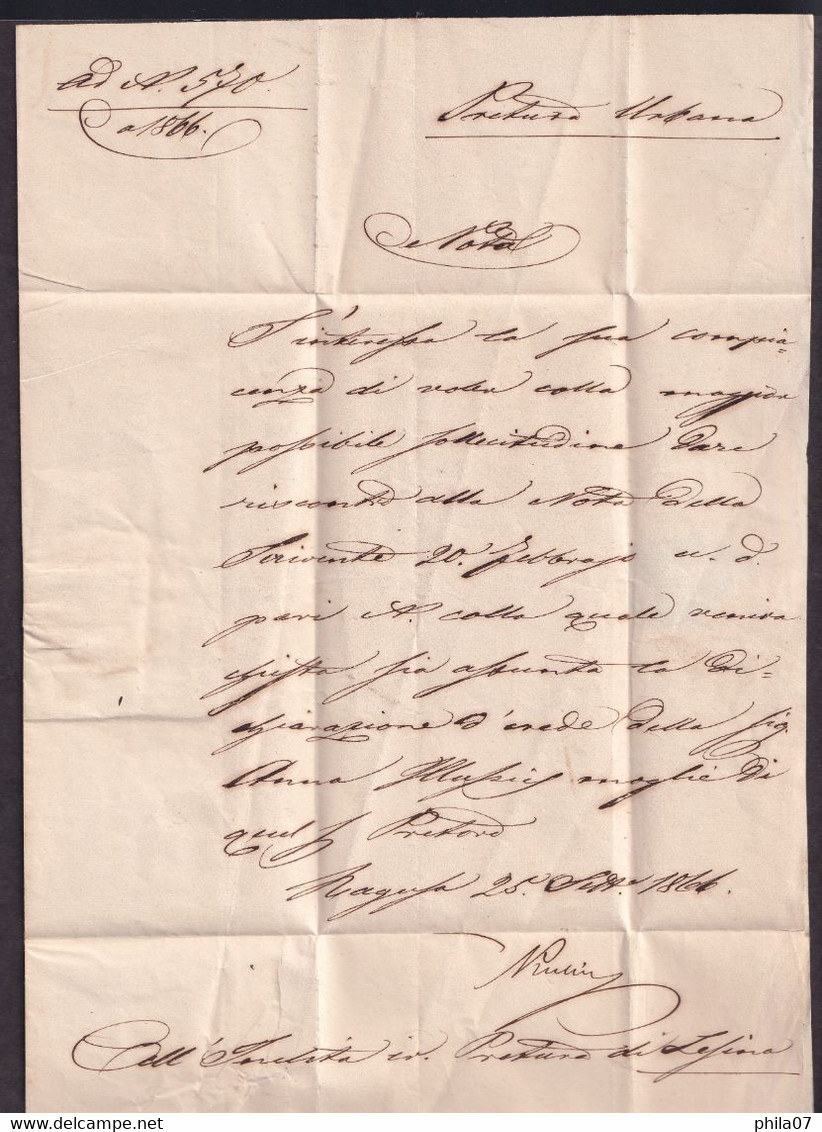 ad N. 570.
a 1866.
Pretura Urbana
Nota
S'interessa la sua compia-
cenza di voler colla maggior
possibile sollecitudine dare
riscontro alla Nota della
Scrivente 20. Febbrajo a. d.
pari N. colla quale veniva
chiesta sia assunta la di-
chiarazione d'erede della sig.
Anna moglie di
quel Pretore
Ragusa 25. Sett.e 1866.
All'Inclita ir. Pretura di Lesina
phila07